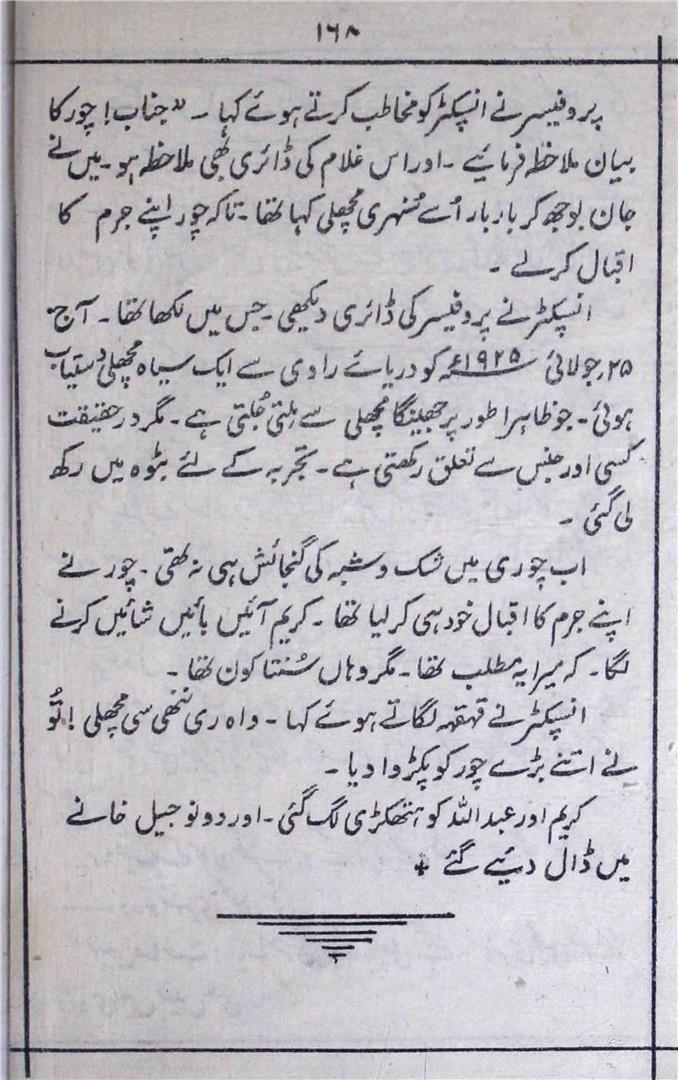 ۱۶۸
پروفیسر نے انسپکٹر کو مخاطب کرتے ہوئے کہا ۔ "جناب! چور کا
بیان ملاحظہ فرمائیے ۔ اور اس غلام کی ڈائری بھی ملاحظہ ہو ۔ میں نے
جان بوجھ کر بار بار اُسے سُنہری مچھلی کہا تھا ۔ تاکہ چور اپنے جرم کا
اقبال کرلے ۔
انسپکٹر نے پروفیسر کی ڈائری دیکھی ۔ جس میں لکھا تھا ۔ آج
۲۵؍جولائی ۱۹۲۵ء کو دریائے راوی سے ایک سیاہ مچھلی دستیاب
ہوئی ۔ جو ظاہرا طور پر جھینگا مچھلی سے ملتی جُلتی ہے ۔ مگر درحقیقت
کسی اور جنس سے تعلق رکھتی ہے ۔ تجربہ کے لئے بٹوہ میں رکھ
لی گئی ۔
اب چوری میں شک و شبہ کی گنجائش ہی نہ تھی ۔ چور نے
اپنے جرم کا اقبال خود ہی کر لیا تھا ۔ کریم آئیں بائیں شائیں کرنے
لگا ۔ کہ میرا یہ مطلب تھا ۔ مگر وہاں سُنتا کون تھا ۔
انسپکٹر نے قہقہہ لگاتے ہوئے کہا ۔ واہ ری ننھی سی مچھلی ! تُو
نے اتنے بڑے چور کو پکڑوا دیا ۔
کریم اور عبداللہ کو ہتھکڑی لگ گئی ۔ اور دونو جیل خانے
میں ڈال دیئے گئے ÷